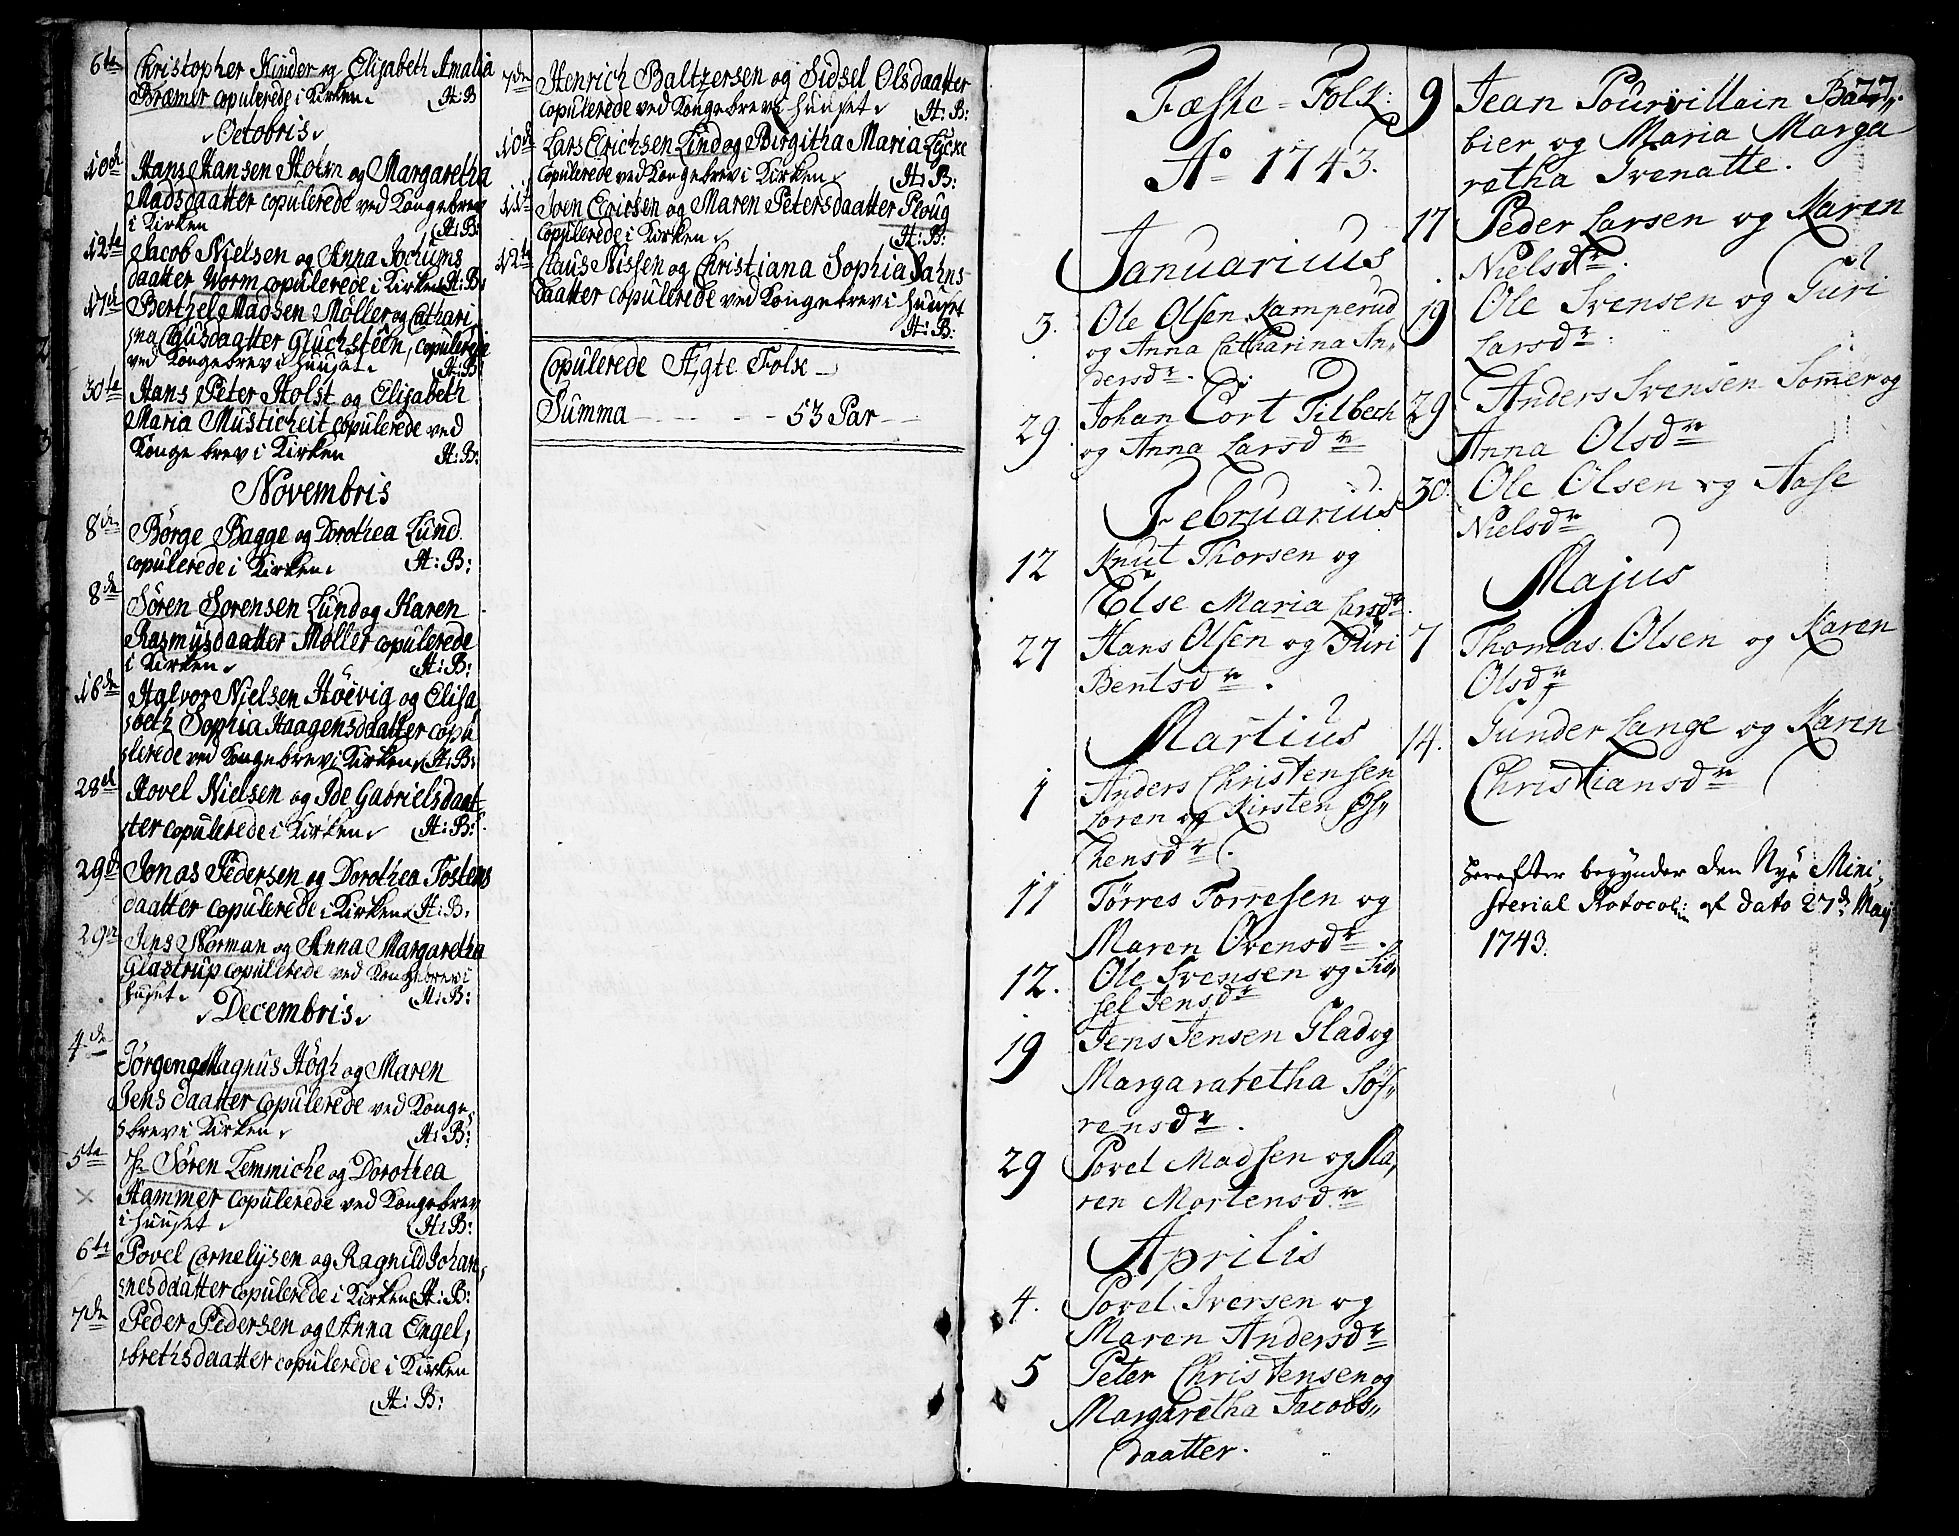 6te Christopher Hinder og Elisabeth Amalia
Bræmer copulerede i Kirken. H: B
Octobris
10d Hans Hansen Holm og Margaretha
Madsdaatter copulerede ved Kongebrev
i Kirken H: B:
12te Jacob Nielsen og Anna Jochums
daatter Worm copulerede i Kirken H: B:
17d Berthel Madsen Møller og Cathari
na Clausdaatter Gluchsteen, copulerede
ved Kongebrev i Huuset. H: B
30te Hans Peter Holst og Elisabeth
Maria Musticheit copulerede ved
Konge brev i Kirken H: B:
Novembris
8de Börge Bagge og Dorothea Lund
copulerede i Kirken. H: B:
8de Sören Sorensen Lund og Karen
Rasmusdaatter Møller copulerede
i Kirken. H: B:
16de Halvor Nielsen Höevig og Elisa
beth Sophia Haagensdaatter copu
lerede ved Kongebrev i Kirken H: B:
28d Hovel Nielsen og Ide Gabrielsdaat
ter copulerede i Kirken H: B:
29d Jonas Pedersen og Dorothea Tostens
daatter copulerede i Kirken H: B:
29de Jens Norman og Anna Margaretha
Glastrup copulerede ved Kongebrev i
huset. H: B:
Decembris
4de Jörgen Magnus Högh og Maren
Jens daatter copulerede ved Konge
brev i Kirken H: B:
5te Hr Sören Lemmiche og Dorothea
Hammer copulerede ved Kongebrev
i Huuset H: B:
6te Povel Cornelijsen og Ragnild Johan
nesdaatter copulerede i Kirken H: B:
7de Peder Pedersen og Anna Engel
brethsdaatter copulerede i Kirken
H: B:
7de Henrich Baltzersen og Sidsel Olsdaatter
copulerede ved Kongebrev i Huuset. H: B:
10de Lars Erichsen Lind og Birgitha Maria Lycke
copulerede ved Kongebrev i Kirken H: B:
11te Iven Ericsen og Maren Petersdaatter Ploug
copulerede i Kirken H: B:
12te Claus Nissen og Christiana Sophia Jahns
daatter copulerede ved Kongebrev i Huuset
H: B:
Copulerede Ægte Folk
Summa - - - - 53 Par -
Fæste-Folk:
Ao 1743.
Januarius
3. Ole Olsen Kamperud
og Anna Catharina An,,
dersdr.
29. Johan Cort Tilbech
og Anna Larsdr
Februarius
12 Knut Thorsen og
Else Maria Larsdr.
27 Hans Olsen og Guri
Bentsdr.
Martius
1 Anders Christensen
Loren og Kirsten Øs,,
thensdr.
11 Tørres Torresen og
Maren Ovensdr.
12. Ole Svensen og Sid,,
sel Jensdr
19 Jens Jensen Glad og
Margaratetha Söf,,
rensdr.
29 Povel Madsen og Ka,,
ren Mortensdr
Aprilis
4. Povel Iversen og
Maren Andersdr
5 Peter Christensen og
Margaretha Jacobs,,
daatter.
77.
9 Jean Pourvillain Bar,,
bier og Maria Marga
retha Svenatte.
17 Peder Larsen og Karen
Nielsdr.
19 Ole Svensen og Guri
Larsdr.
29 Anders Svensen Somer og
Anna Olsdr
30. Ole Olsen og Aase
Nielsdr
Majus
7 Thomas Olsen og Karen
Olsdr
14. Gunder Lange og Karen
Christiansdr
Herefter begynder den Nye Mini,
sterial Protocol: af dato 27d May
1743.